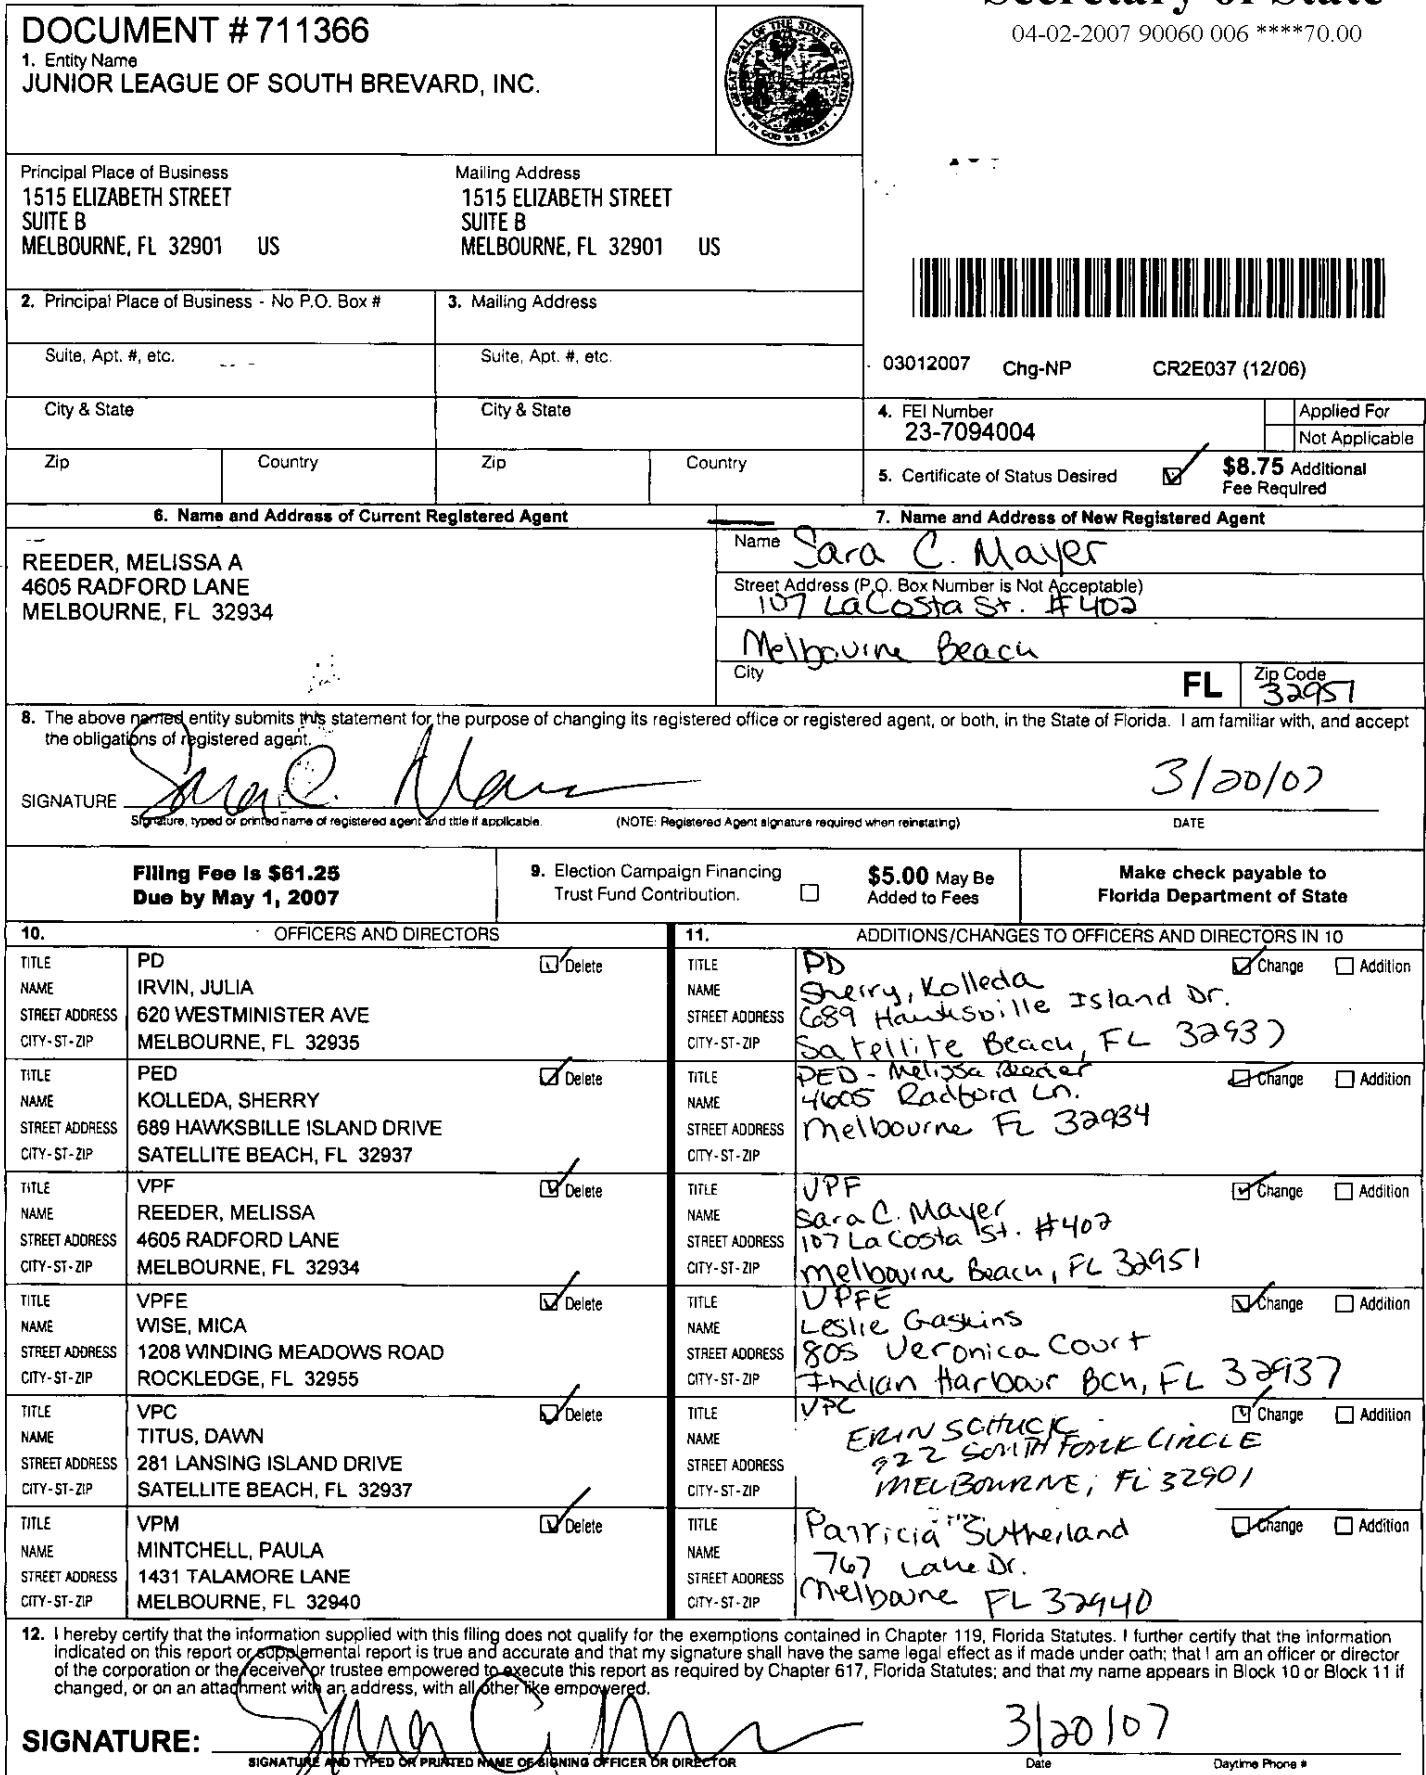 Secretary of State
04-02-2007 90060 006 ****70.00
DOCUMENT # 711366
1. Entity Name
JUNIOR LEAGUE OF SOUTH BREVARD, INC.
GREAT SEAL OF THE STATE OF FLORIDA
IN GOD WE TRUST
Principal Place of Business
1515 ELIZABETH STREET
SUITE B
MELBOURNE, FL 32901 US
Mailing Address
1515 ELIZABETH STREET
SUITE B
MELBOURNE, FL 32901 US
2. Principal Place of Business - No P.O. Box #
3. Mailing Address
Suite, Apt. #, etc.
Suite, Apt. #, etc.
City & State
City & State
Zip
Country
Zip
Country
03012007 Chg-NP CR2E037 (12/06)
4. FEI Number
23-7094004
Applied For
Not Applicable
5. Certificate of Status Desired
$8.75 Additional
Fee Required
6. Name and Address of Current Registered Agent
REEDER, MELISSA A
4605 RADFORD LANE
MELBOURNE, FL 32934
7. Name and Address of New Registered Agent
Name Sara C. Mayer
Street Address (P.O. Box Number is Not Acceptable)
107 LaCosta St. #402
Melbourne Beach
City
FL
Zip Code
32951
8. The above named entity submits this statement for the purpose of changing its registered office or registered agent, or both, in the State of Florida. I am familiar with, and accept
the obligations of registered agent.
SIGNATURE Sara C. Mayer 3/20/07
Signature, typed or printed name of registered agent and title if applicable. (NOTE: Registered Agent signature required when reinstating) DATE
Filing Fee is $61.25
Due by May 1, 2007
9. Election Campaign Financing
Trust Fund Contribution.
$5.00 May Be
Added to Fees
Make check payable to
Florida Department of State
10. OFFICERS AND DIRECTORS
TITLE PD Delete
NAME IRVIN, JULIA
STREET ADDRESS 620 WESTMINISTER AVE
CITY-ST-ZIP MELBOURNE, FL 32935
TITLE PED Delete
NAME KOLLEDA, SHERRY
STREET ADDRESS 689 HAWKSBILLE ISLAND DRIVE
CITY-ST-ZIP SATELLITE BEACH, FL 32937
TITLE VPF Delete
NAME REEDER, MELISSA
STREET ADDRESS 4605 RADFORD LANE
CITY-ST-ZIP MELBOURNE, FL 32934
TITLE VPFE Delete
NAME WISE, MICA
STREET ADDRESS 1208 WINDING MEADOWS ROAD
CITY-ST-ZIP ROCKLEDGE, FL 32955
TITLE VPC Delete
NAME TITUS, DAWN
STREET ADDRESS 281 LANSING ISLAND DRIVE
CITY-ST-ZIP SATELLITE BEACH, FL 32937
TITLE VPM Delete
NAME MINTCHELL, PAULA
STREET ADDRESS 1431 TALAMORE LANE
CITY-ST-ZIP MELBOURNE, FL 32940
11. ADDITIONS/CHANGES TO OFFICERS AND DIRECTORS IN 10
TITLE PD Change Addition
NAME Sherry, Kolleda
STREET ADDRESS 689 Hawksbille Island Dr.
CITY-ST-ZIP Satellite Beach, FL 32937
TITLE PED - Melissa Reeder Change Addition
NAME 4605 Radford Ln.
STREET ADDRESS Melbourne FL 32934
CITY-ST-ZIP
TITLE VPF Change Addition
NAME Sara C. Mayer
STREET ADDRESS 107 La Costa St. #402
CITY-ST-ZIP Melbourne Beach, FL 32951
TITLE VPFE Change Addition
NAME Leslie Gaskins
STREET ADDRESS 805 Veronica Court
CITY-ST-ZIP Indian Harbour Bch, FL 32937
TITLE VPC Change Addition
NAME ERIN SCHUCK
STREET ADDRESS 922 SOUTH FORK CIRCLE
CITY-ST-ZIP MELBOURNE, FL 32901
TITLE Patricia Sutherland Change Addition
NAME 767 Lake Dr.
STREET ADDRESS
CITY-ST-ZIP Melbourne FL 32940
12. I hereby certify that the information supplied with this filing does not qualify for the exemptions contained in Chapter 119, Florida Statutes. I further certify that the information
indicated on this report or supplemental report is true and accurate and that my signature shall have the same legal effect as if made under oath; that I am an officer or director
of the corporation or the receiver or trustee empowered to execute this report as required by Chapter 617, Florida Statutes; and that my name appears in Block 10 or Block 11 if
changed, or on an attachment with an address, with all other like empowered.
SIGNATURE: 3/20/07
SIGNATURE AND TYPED OR PRINTED NAME OF SIGNING OFFICER OR DIRECTOR Date Daytime Phone #